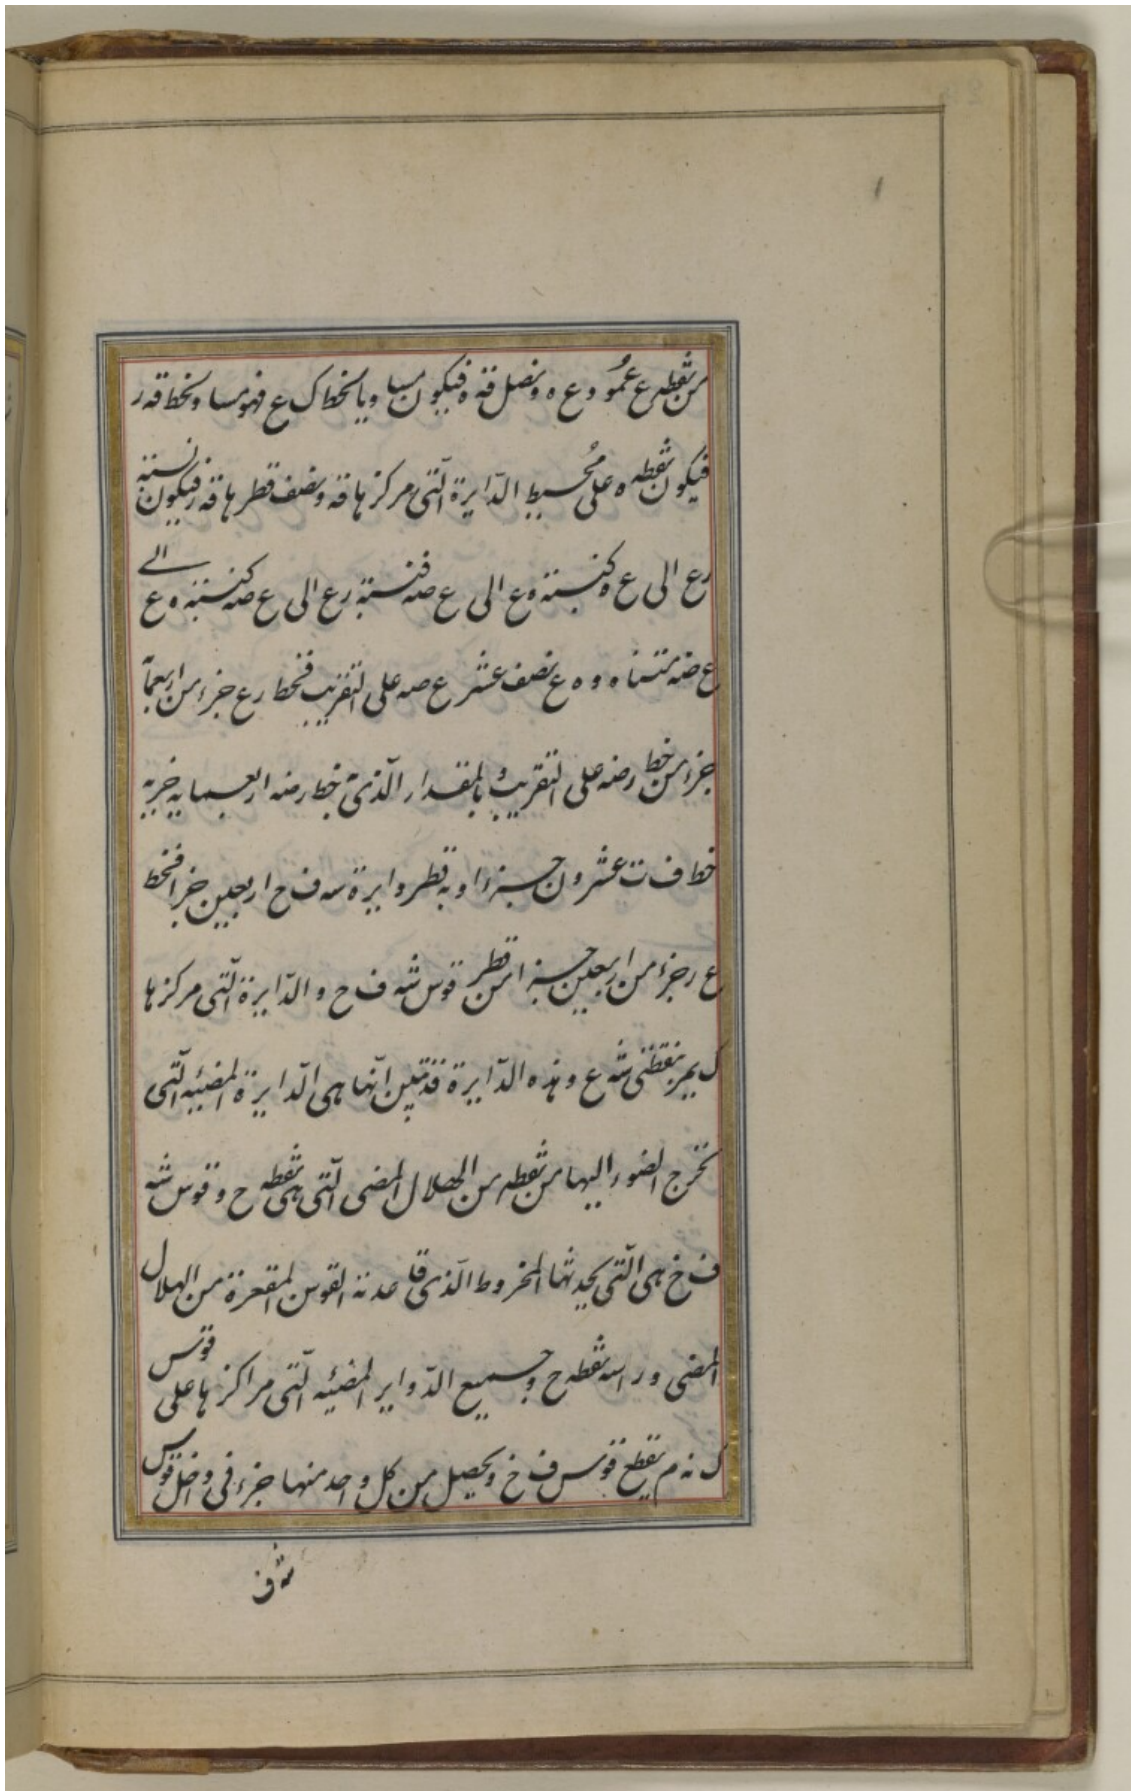 من نقطه ع عمود ع ه و نصل قه ه فيكون مساويا لخط ك ع فهو مساو لخط قه ر
فيكون نقطه ه على محيط الدّايرة الّتى مركزها قه و نصف قطرها قه ر فيكون نسبة
رع الى ع ه كنسبته ه ع الى ع صه فنسبة رع الى ع صه كنسبته ه ع الے
ع صه مثناه و ه ع نصف عشر ع صه على التقريب فخط ر ع جزء من اربعمأ
جزء من خط ر صه على التقريب و بالمقدار الّذى خط ر صه اربعمايه جزء به
خط ف ت عشرون جزءا و به قطر دايرة سه ف ح اربعين جزا فخط
ع ر جزء من اربعين جزا من قطر قوس شه ف ح و الدّايرة الّتى مركزها
ك يمر بنقطتى شه ع و هذه الدّايرة قد تبين انّها هى الدّايرة المضيئه الّتى
تخرج الضوء اليها من نقطه من الهلال المضى الّتى هى نقطه ح و قوس شه
ف خ هى الّتى يحدثها المخروط الّذى قاعدته القوس المقعرة من الهلال
المضى و راسه نقطه ح و جميع الدّواير المضيئه الّتى مراكزها على قوس
ك نه م يقطع قوس ف خ و يحصل من كل واحد منها جزء فى داخل قوس
شه ف